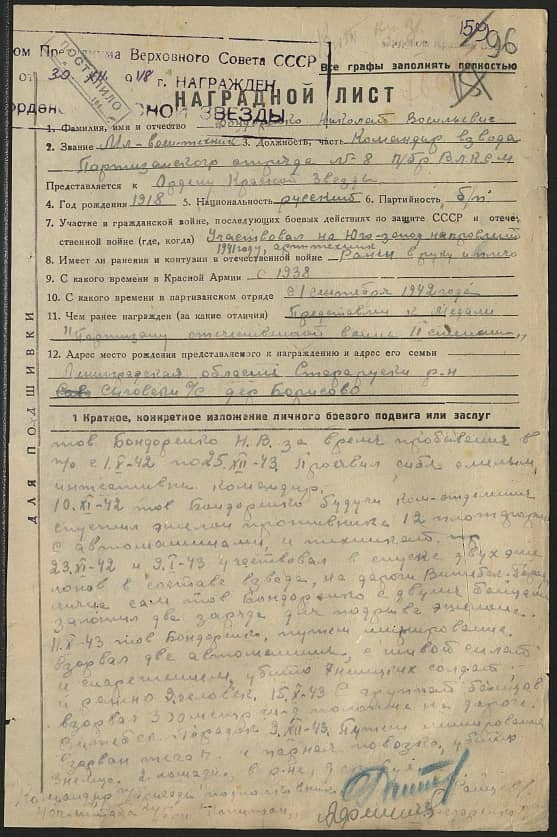 159
96
ом Президиума Верховного Совета СССР
Все графы заполнять полностью
от 30. XII 948 г. НАГРАЖДЕН
ПОСТУПИЛО
НАГРАДНОЙ ЛИСТ
1. Фамилия, имя и отчество Бондоренко Николай Васильевич
2. Звание Мл-воентехник 3. Должность, часть Командир взвода
Партизанского отряда № 8 п/бр ВЛКСМ
Представляется к Ордену Красной Звезды
4. Год рождения 1918 5. Национальность русский 6. Партийность б/п
7. Участие в гражданской войне, последующих боевых действиях по защите СССР и отече-
ственной войне (где, когда) Участвовал на Юго-запад направлении
1941 году,
8. Имеет ли ранения и контузии в отечественной войне Ранен в руку и плечо
9. С какого времени в Красной Армии с 1938
10. С какого времени в партизанском отряде с 1 сентября 1942 года
11. Чем ранее награжден (за какие отличия) Представлен к медали
"Партизану отечественной войны II степени"
12. Адрес место рождения представляемого к награждению и адрес его семьи
Ленинградская область Старорусский р-н
с/с дер Борисово
ДЛЯ ПОДШИВКИ
1 Краткое, конкретное изложение личного боевого подвига или заслуг
тов Бондоренко Н. В. за время пребывания в
п/о с 1.X-42 по 25.XII-43. Проявил себя смелым,
командир.
10.XI-42 тов Бондоренко будучи ком-отделения
спустил эшелон противника 12 платформ
с автомашинами и
23.XII-42 и 9.I-43 участвовал в спуске двух эше
лонов в составе взвода, на дороге Витебск-
сам тов Бондоренко с двумя бойцами
заложил два заряда для подрыва эшелона.
11.X-43 тов Бондоренко, путем минирования
взорвал две автомашины, с живой силой
и снаряжением, убито 7 немецких солдат
и ранено 9 человек. 15.X-43 С группой бойцов
взорвал на дороге
Витебск 9.XII-43. Путем минирования
взорван парная повозка, убито
3 немца 2 лошади, в р-не,
Командир